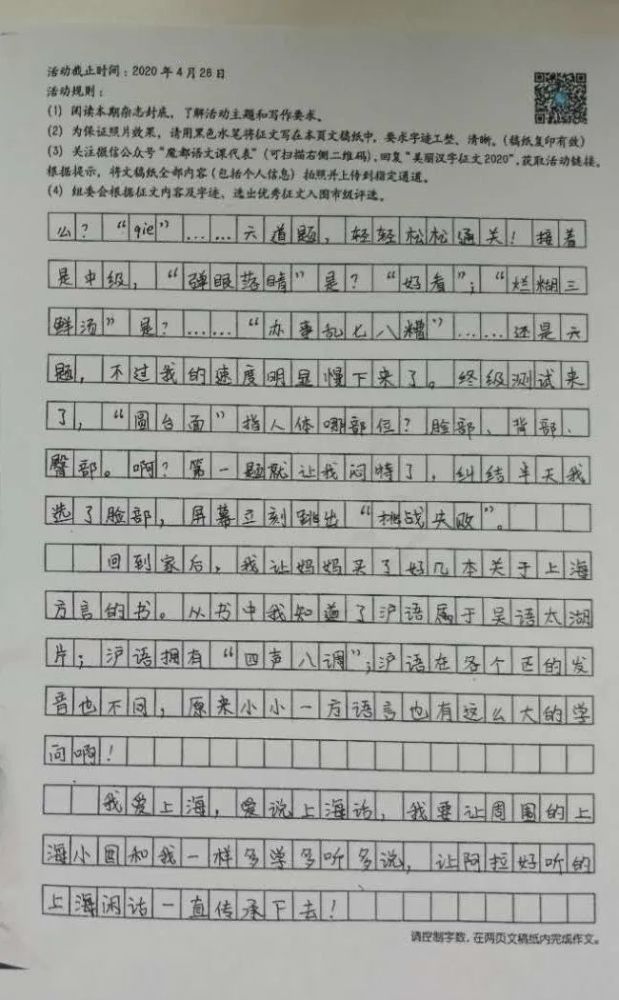 活动截止时间：2020 年 4 月 26 日
活动规则：
（1）阅读本期杂志封底，了解活动主题和写作要求。
（2）为保证照片效果，请用黑色水笔将征文写在本页文稿纸中，要求字迹工整、清晰。（稿纸复印有效）
（3）关注微信公众号“魔都语文课代表”（可扫描右侧二维码），回复“美丽汉字征文2020”，获取活动链接。
根据提示，将文稿纸全部内容（包括个人信息）拍照并上传到指定通道。
（4）组委会根据征文内容及字迹，选出优秀征文入围市级评选。
么？“qie”……六道题，轻轻松松通关！接着
是中级，“弹眼落睛”是？“好看”；“烂糊三
鲜汤”是？……“办事乱七八糟”……还是六
题，不过我的速度明显慢下来了。终级测试来
了，“圆台面”指人体哪部位？脸部、背部、
臀部。啊？第一题就让我闷特了，纠结半天我
选了脸部，屏幕立刻跳出“挑战失败”。
回到家后，我让妈妈买了好几本关于上海
方言的书。从书中我知道了沪语属于吴语太湖
片；沪语拥有“四声八调”；沪语在各个区的发
音也不同，原来小小一方语言也有这么大的学
问啊！
我爱上海，爱说上海话，我要让周围的上
海小囡和我一样多学多听多说，让阿拉好听的
上海闲话一直传承下去！
请控制字数，在两页文稿纸内完成作文。